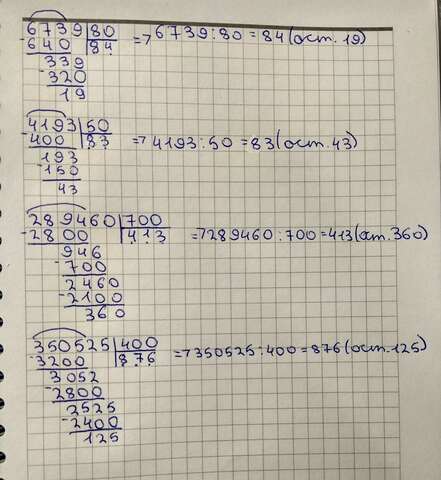 6739 80 => 6739:80=84(ост.19)
-640 84
339
-320
19
4193 50
-400 83 => 4193:50=83(ост.43)
193
-150
43
289460 700
-2800 413 => 289460:700=413(ост.360)
946
-700
2460
-2100
360
350525 400
-3200 876 => 350525:400=876(ост.125)
3052
-2800
2525
-2400
125